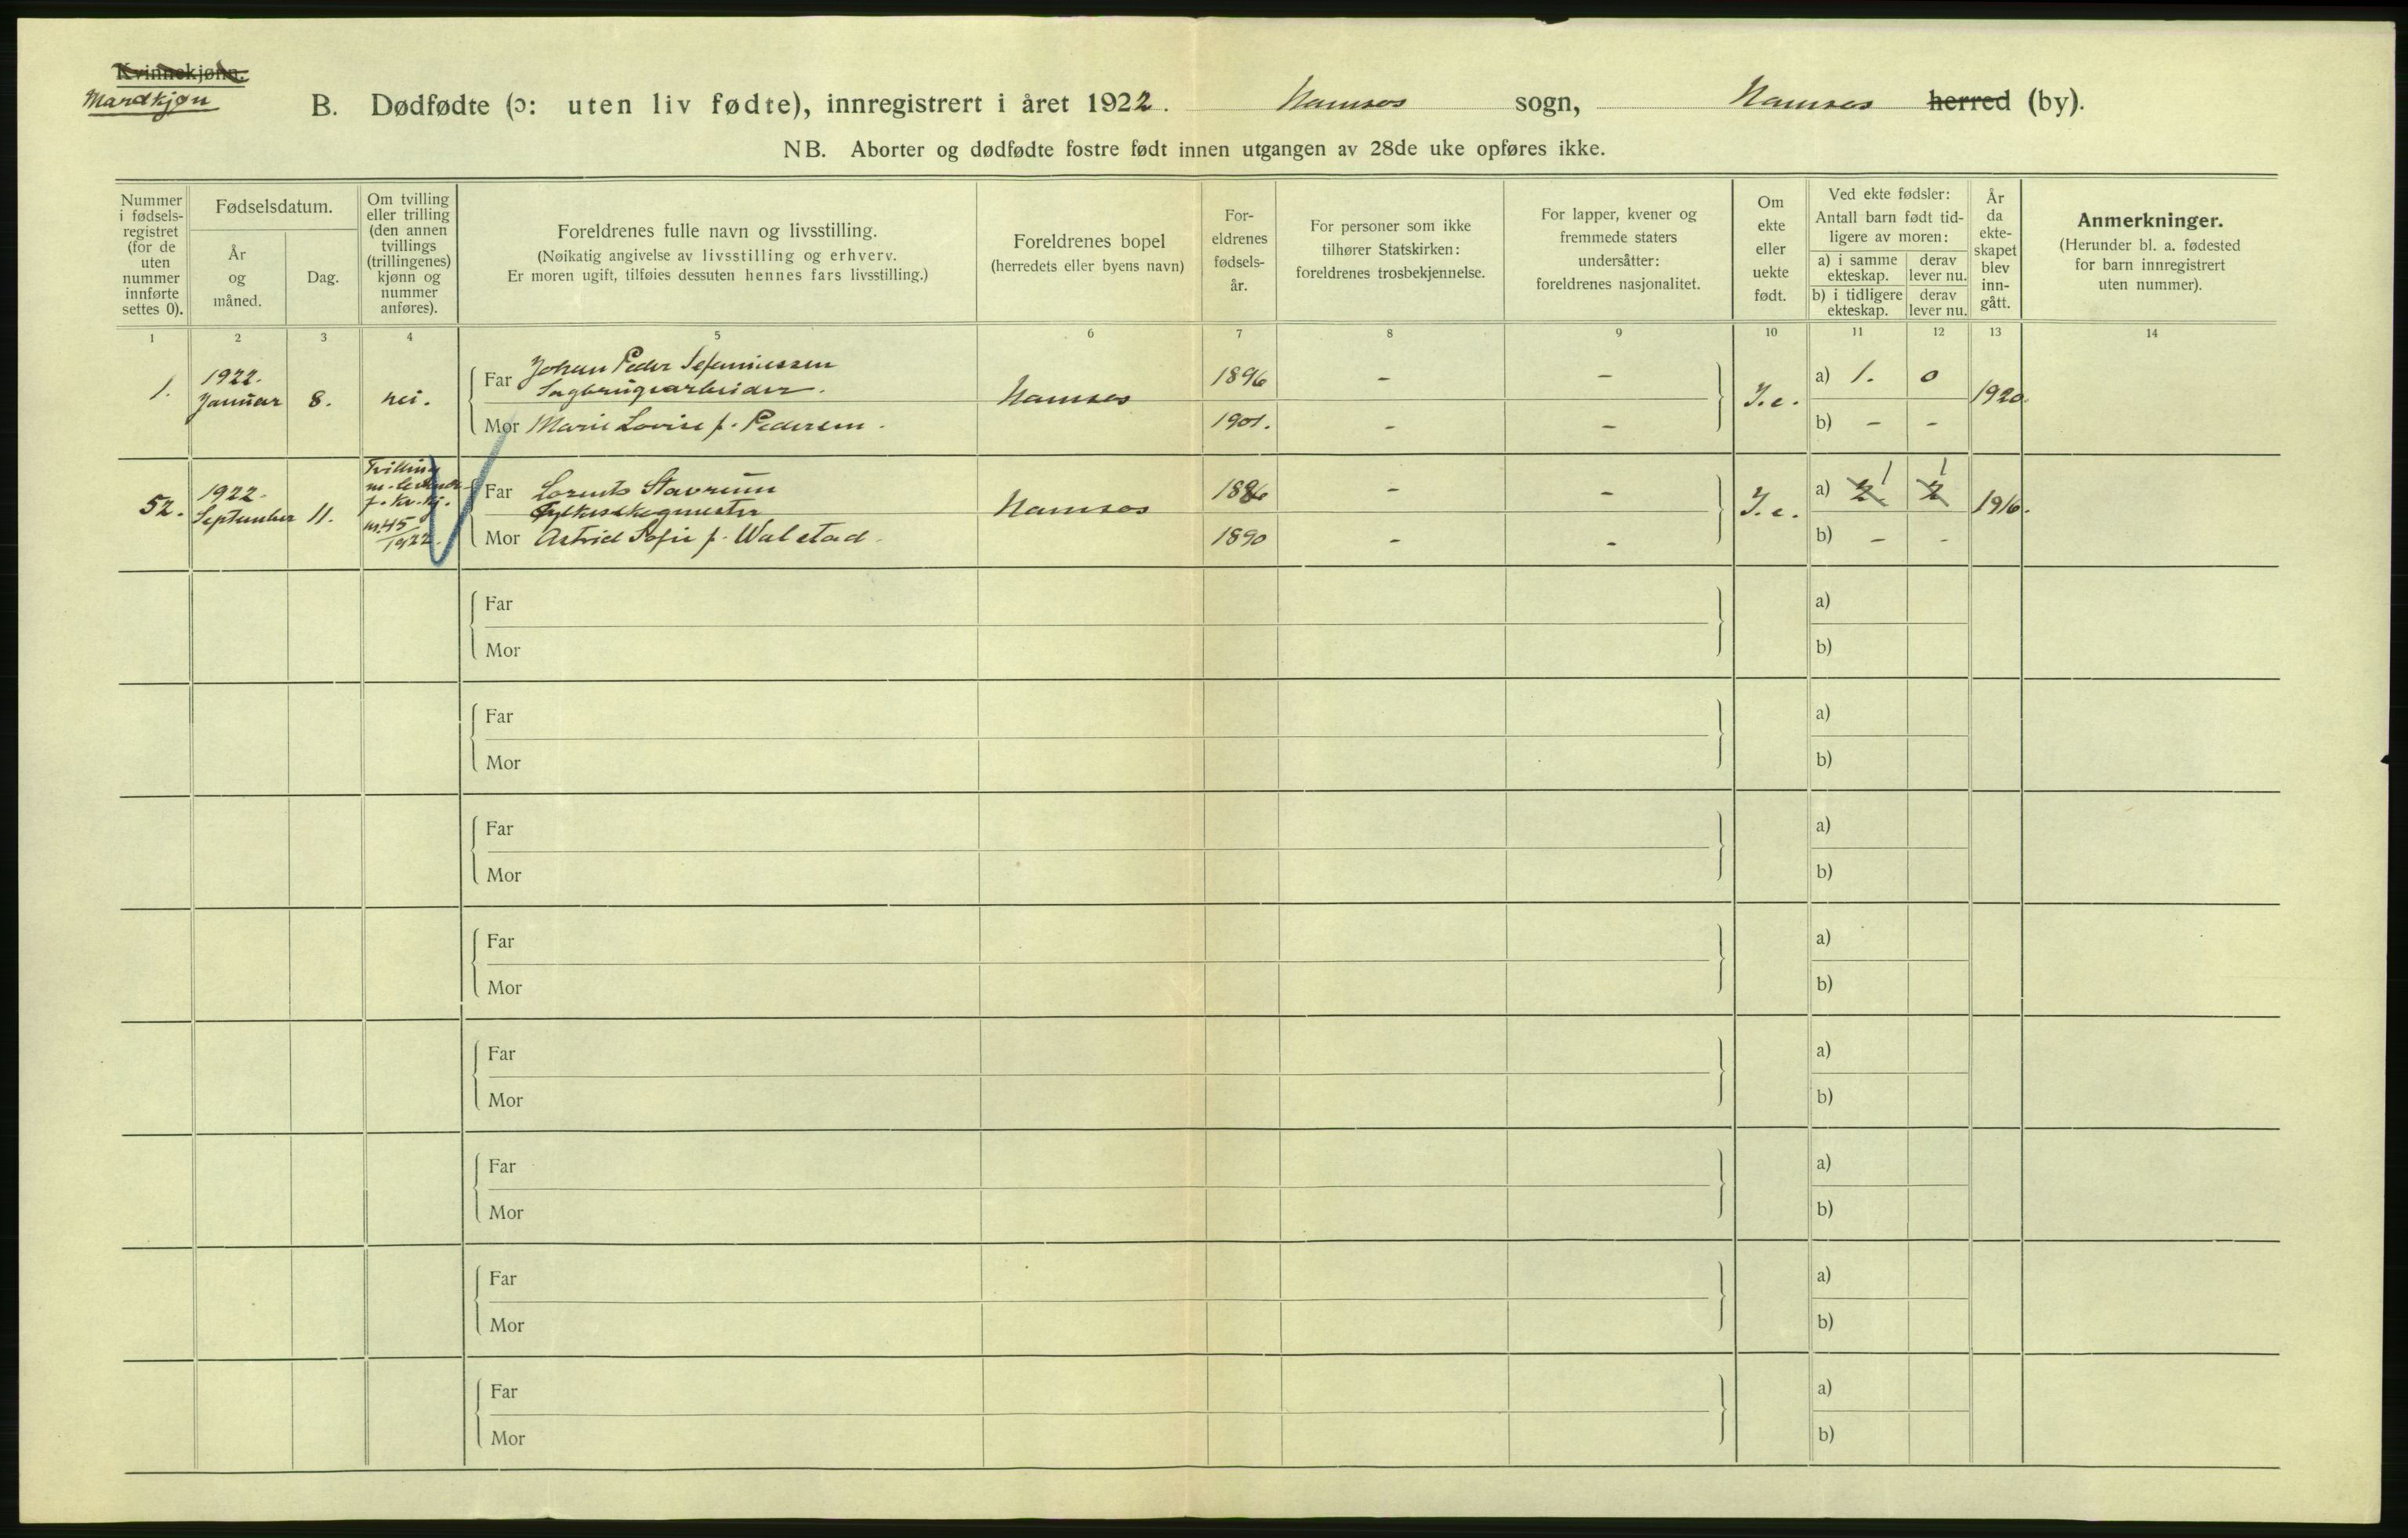 Kvinnekjønn.
Mandkjøn
B. Dødfødte (ɔ: uten liv fødte), innregistrert i året 1922. Namsos sogn, Namsos herred (by).
NB. Aborter og dødfødte fostre født innen utgangen av 28de uke opføres ikke.
Nummer i fødsels-registret (for de uten nummer innførte settes 0).
Fødselsdatum.
År og måned.
Dag.
Om tvilling eller trilling (den annen tvillings (trillingenes) kjønn og nummer anføres).
Foreldrenes fulle navn og livsstilling.
(Nøikatig angivelse av livsstilling og erhverv.
Er moren ugift, tilføies dessuten hennes fars livsstilling.)
Foreldrenes bopel
(herredets eller byens navn)
For-eldrenes fødsels-år.
For personer som ikke tilhører Statskirken: foreldrenes trosbekjennelse.
For lapper, kvener og fremmede staters undersåtter: foreldrenes nasjonalitet.
Om ekte eller uekte født.
Ved ekte fødsler:
Antall barn født tid-ligere av moren:
a) i samme ekteskap.
derav lever nu.
b) i tidligere ekteskap.
derav lever nu.
År da ekte-skapet blev inn-gått.
Anmerkninger.
(Herunder bl. a. fødested for barn innregistrert uten nummer).
1 2 3 4 5 6 7 8 9 10 11 12 13 14
1. 1922. Januar 8. nei.
Far Johan Peder
Sagbrugsarbeider.
Namsos 1896 - -
Mor Marie Lovise f. Pedersen. 1901. - -
a) 1. 0 1920.
b) - -
52. 1922. September 11.
Tvilling
f. kv. kj.
nr. 45
1922.
Far Lorents Stavrum
Fylkesskogmester
Namsos 1886 - -
Mor Astrid Sofie f. Walstad. 1890 - -
a) 2 1 2 1 1916.
b) - -
Far
Mor
a)
b)
Far
Mor
a)
b)
Far
Mor
a)
b)
Far
Mor
a)
b)
Far
Mor
a)
b)
Far
Mor
a)
b)
Far
Mor
a)
b)
Far
Mor
a)
b)